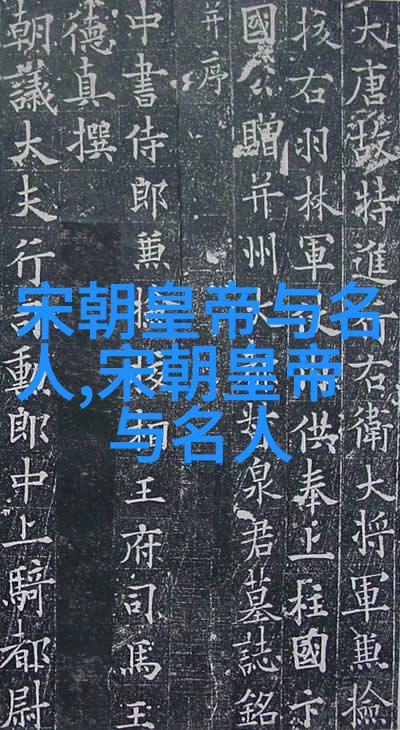 大唐故特進行右衛大將軍兼撿
挍右羽林軍供奉上柱國卞
國公贈并州督泉君墓誌銘
并序
中書侍郎兼撿挍相王府司馬王
德真撰
朝議大夫行司勳郎中上騎都尉
宋朝皇帝与名
人,宋朝皇帝
与名人